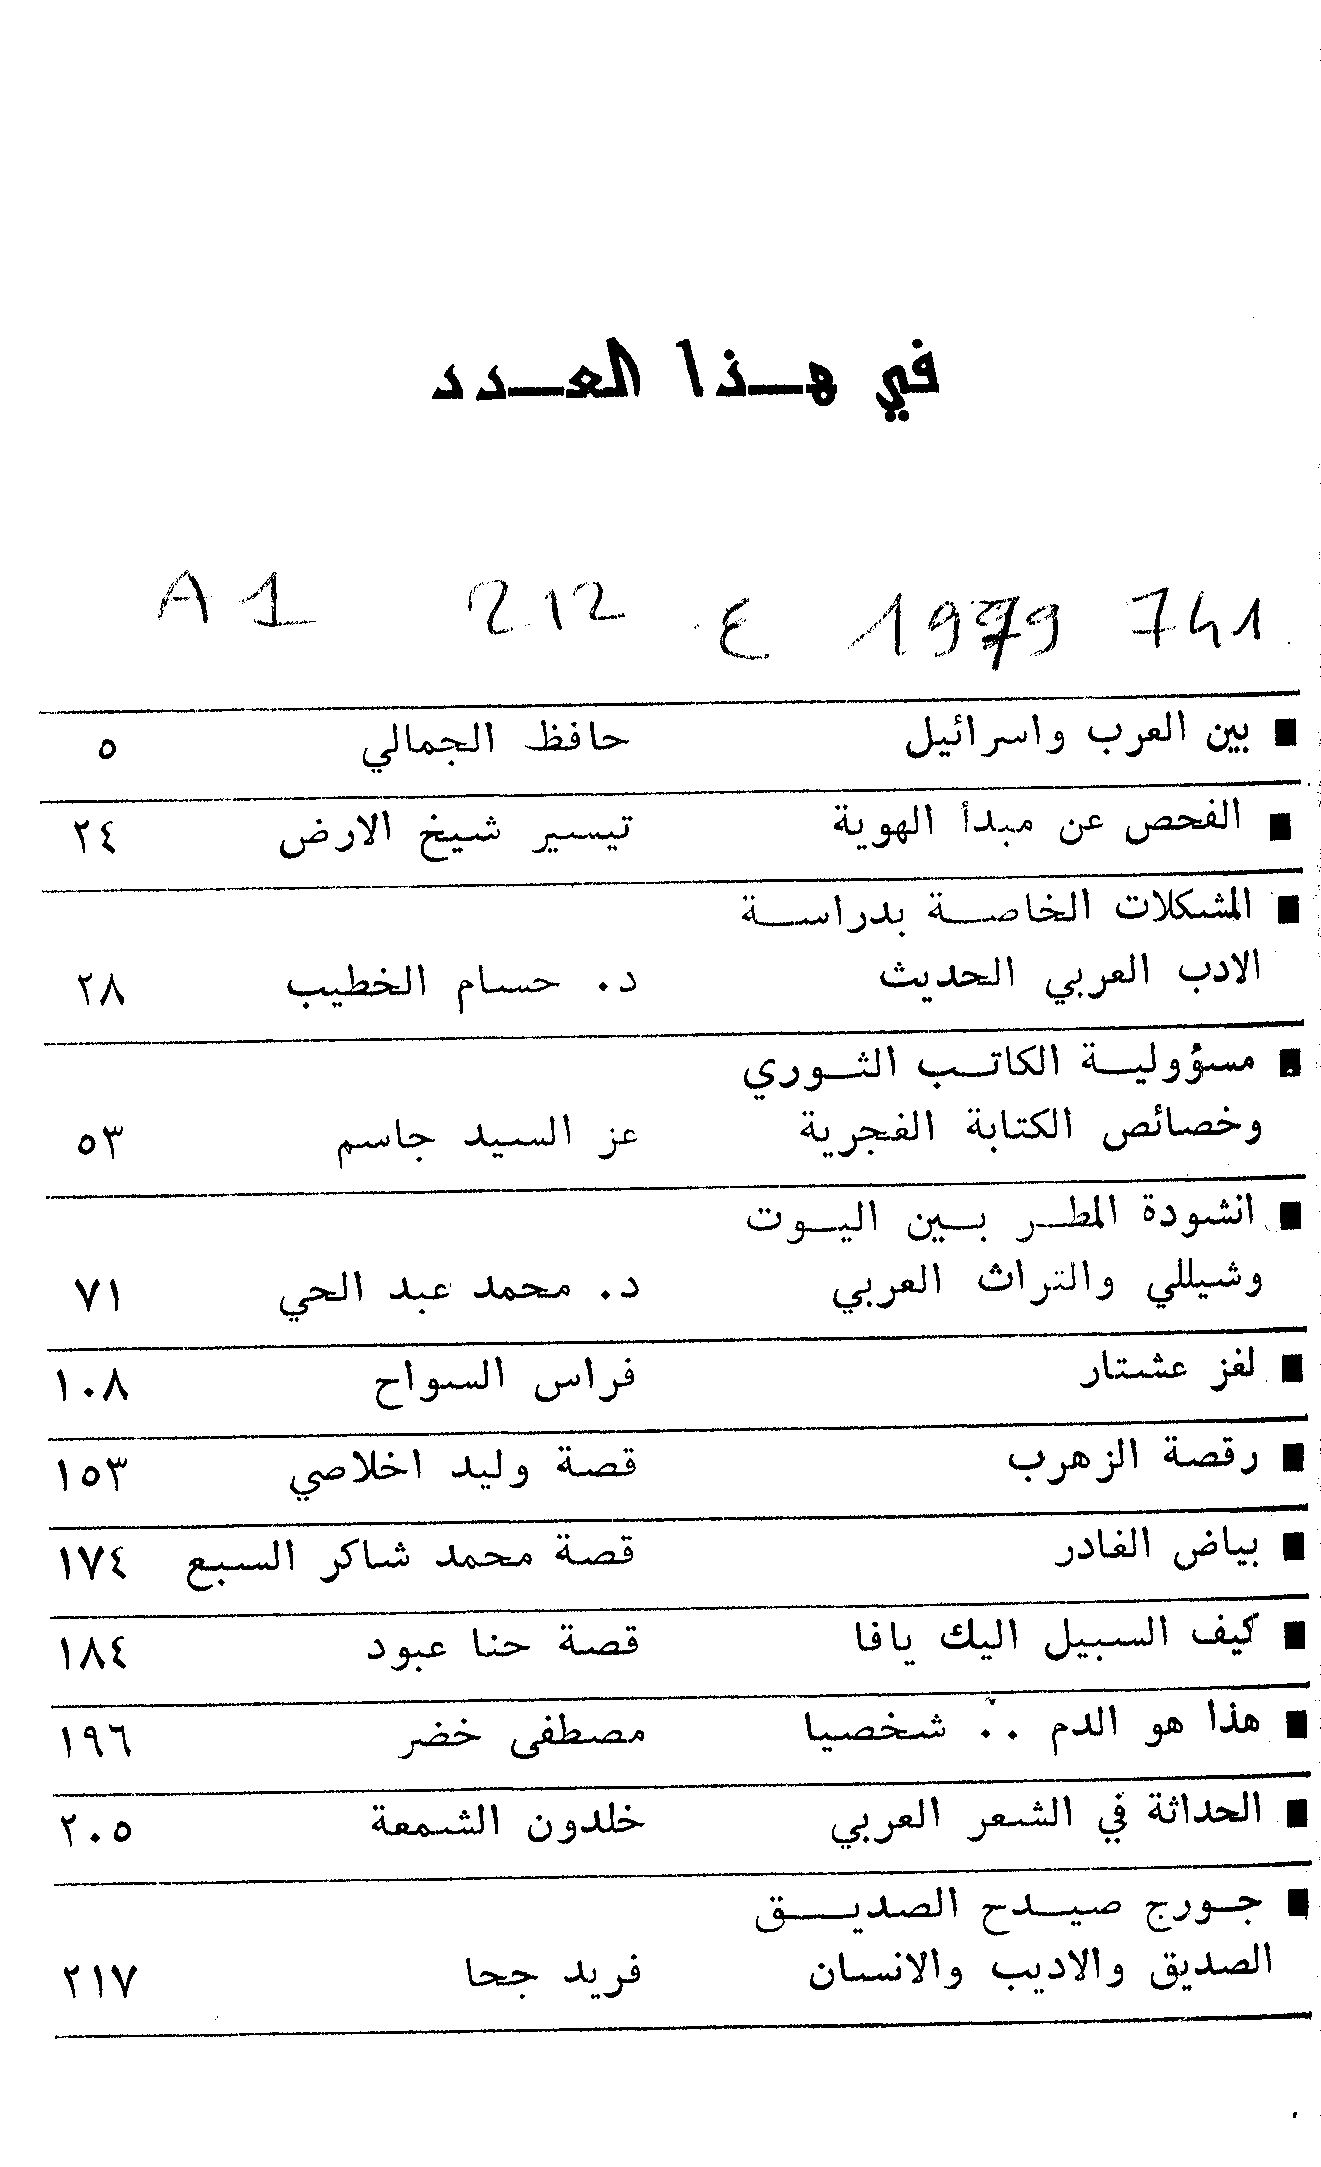 في هذا العدد
A1 212 ع 1979 741
■ بين العرب واسرائيل حافظ الجمالي ٥
■ الفحص عن مبدأ الهوية تيسير شيخ الارض ٢٤
■ المشكلات الخاصة بدراسة
الادب العربي الحديث د. حسام الخطيب ٢٨
■ مسؤولية الكاتب الثوري
وخصائص الكتابة الفجرية عز السيد جاسم ٥٣
■ انشودة المطر بين اليوت
وشيللي والتراث العربي د. محمد عبد الحي ٧١
■ لغز عشتار فراس السواح ١٠٨
■ رقصة الزهرب قصة وليد اخلاصي ١٥٣
■ بياض الغادر قصة محمد شاكر السبع ١٧٤
■ كيف السبيل اليك يافا قصة حنا عبود ١٨٤
■ هذا هو الدم .. شخصيا مصطفى خضر ١٩٦
■ الحداثة في الشعر العربي خلدون الشمعة ٢٠٥
■ جورج صيدح الصديق
الصديق والاديب والانسان فريد جحا ٢١٧